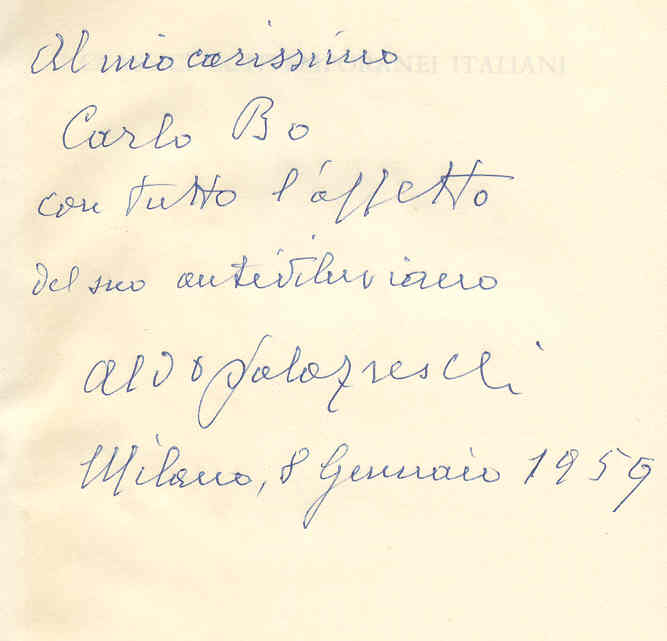 Al mio carissimo
ORANEI ITALIANI
Carlo Bo
con tutto l'affetto
del suo antidiluviano
Aldo Palazzeschi
Milano, 8 Gennaio 1959